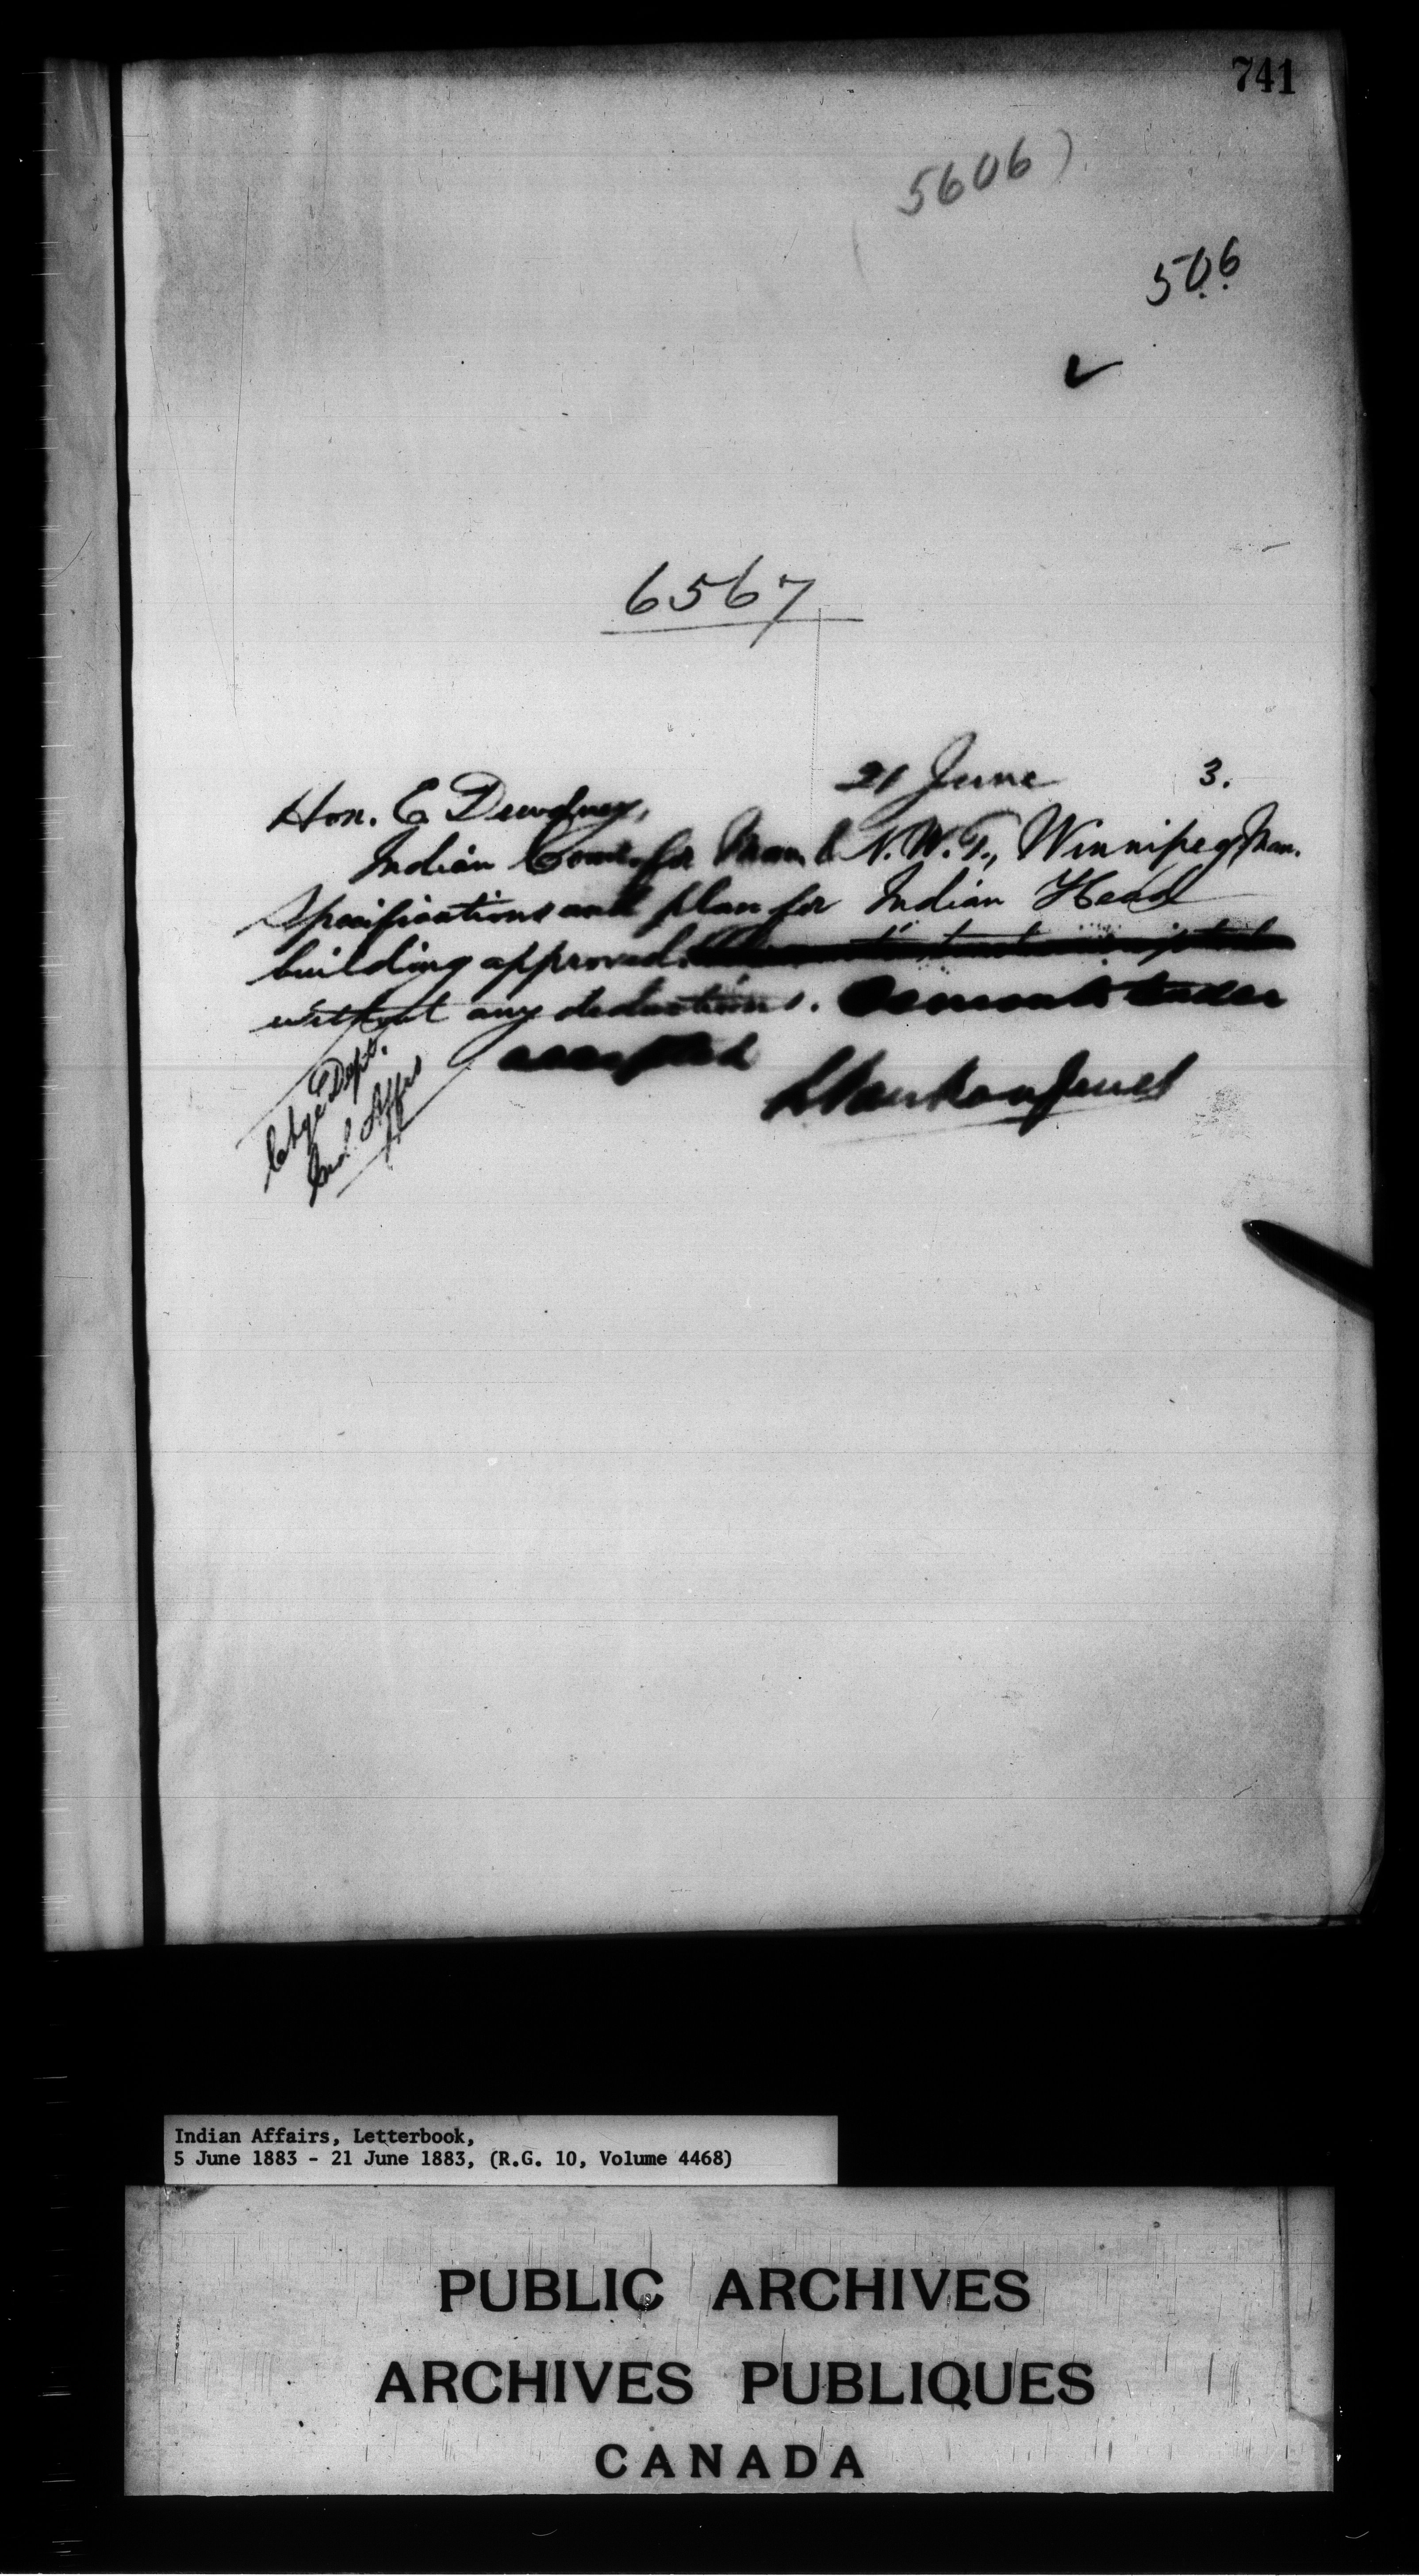 741
5606)
506
6567
21 June 3.
Hon. E Dewdney,
Indian Comr. for Man. & N.W.T., Winnipeg, Man.
Specifications and plan for Indian Head
building approved.
without any deductions. tender
accepted
L Vankoughnet
Chge Dept.
Ind. Affrs
Indian Affairs, Letterbook,
5 June 1883 - 21 June 1883, (R.G. 10, Volume 4468)
PUBLIC ARCHIVES
ARCHIVES PUBLIQUES
CANADA